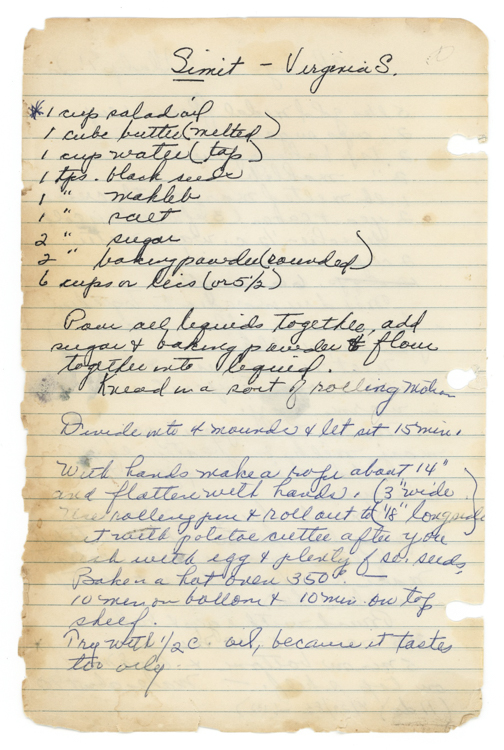 Simit - Virginia S.
* 1 cup salad oil
1 cube butter (melted)
1 cup water (tap)
1 tps. black seeds
1 " mahleb
1 " salt
2 " sugar
2 " baking powder (rounded)
6 cups or less (or 5 1/2)
Pour all liquids together, add
sugar & baking powder & flour
together into liquid.
Knead in a sort of rolling motion
Divide into 4 mounds & let sit 15 min.
With hands make a rope about 14"
and flatten with hands. (3" wide
Use rolling pin & roll out to (18" long
with potatoe cutter after you
with egg & plenty of se. seeds.
Bake in a hot oven 350° -
10 min on bottom & 10 min. on top
shelf.
Try with 1/2 c. oil, because it tastes
too oily.